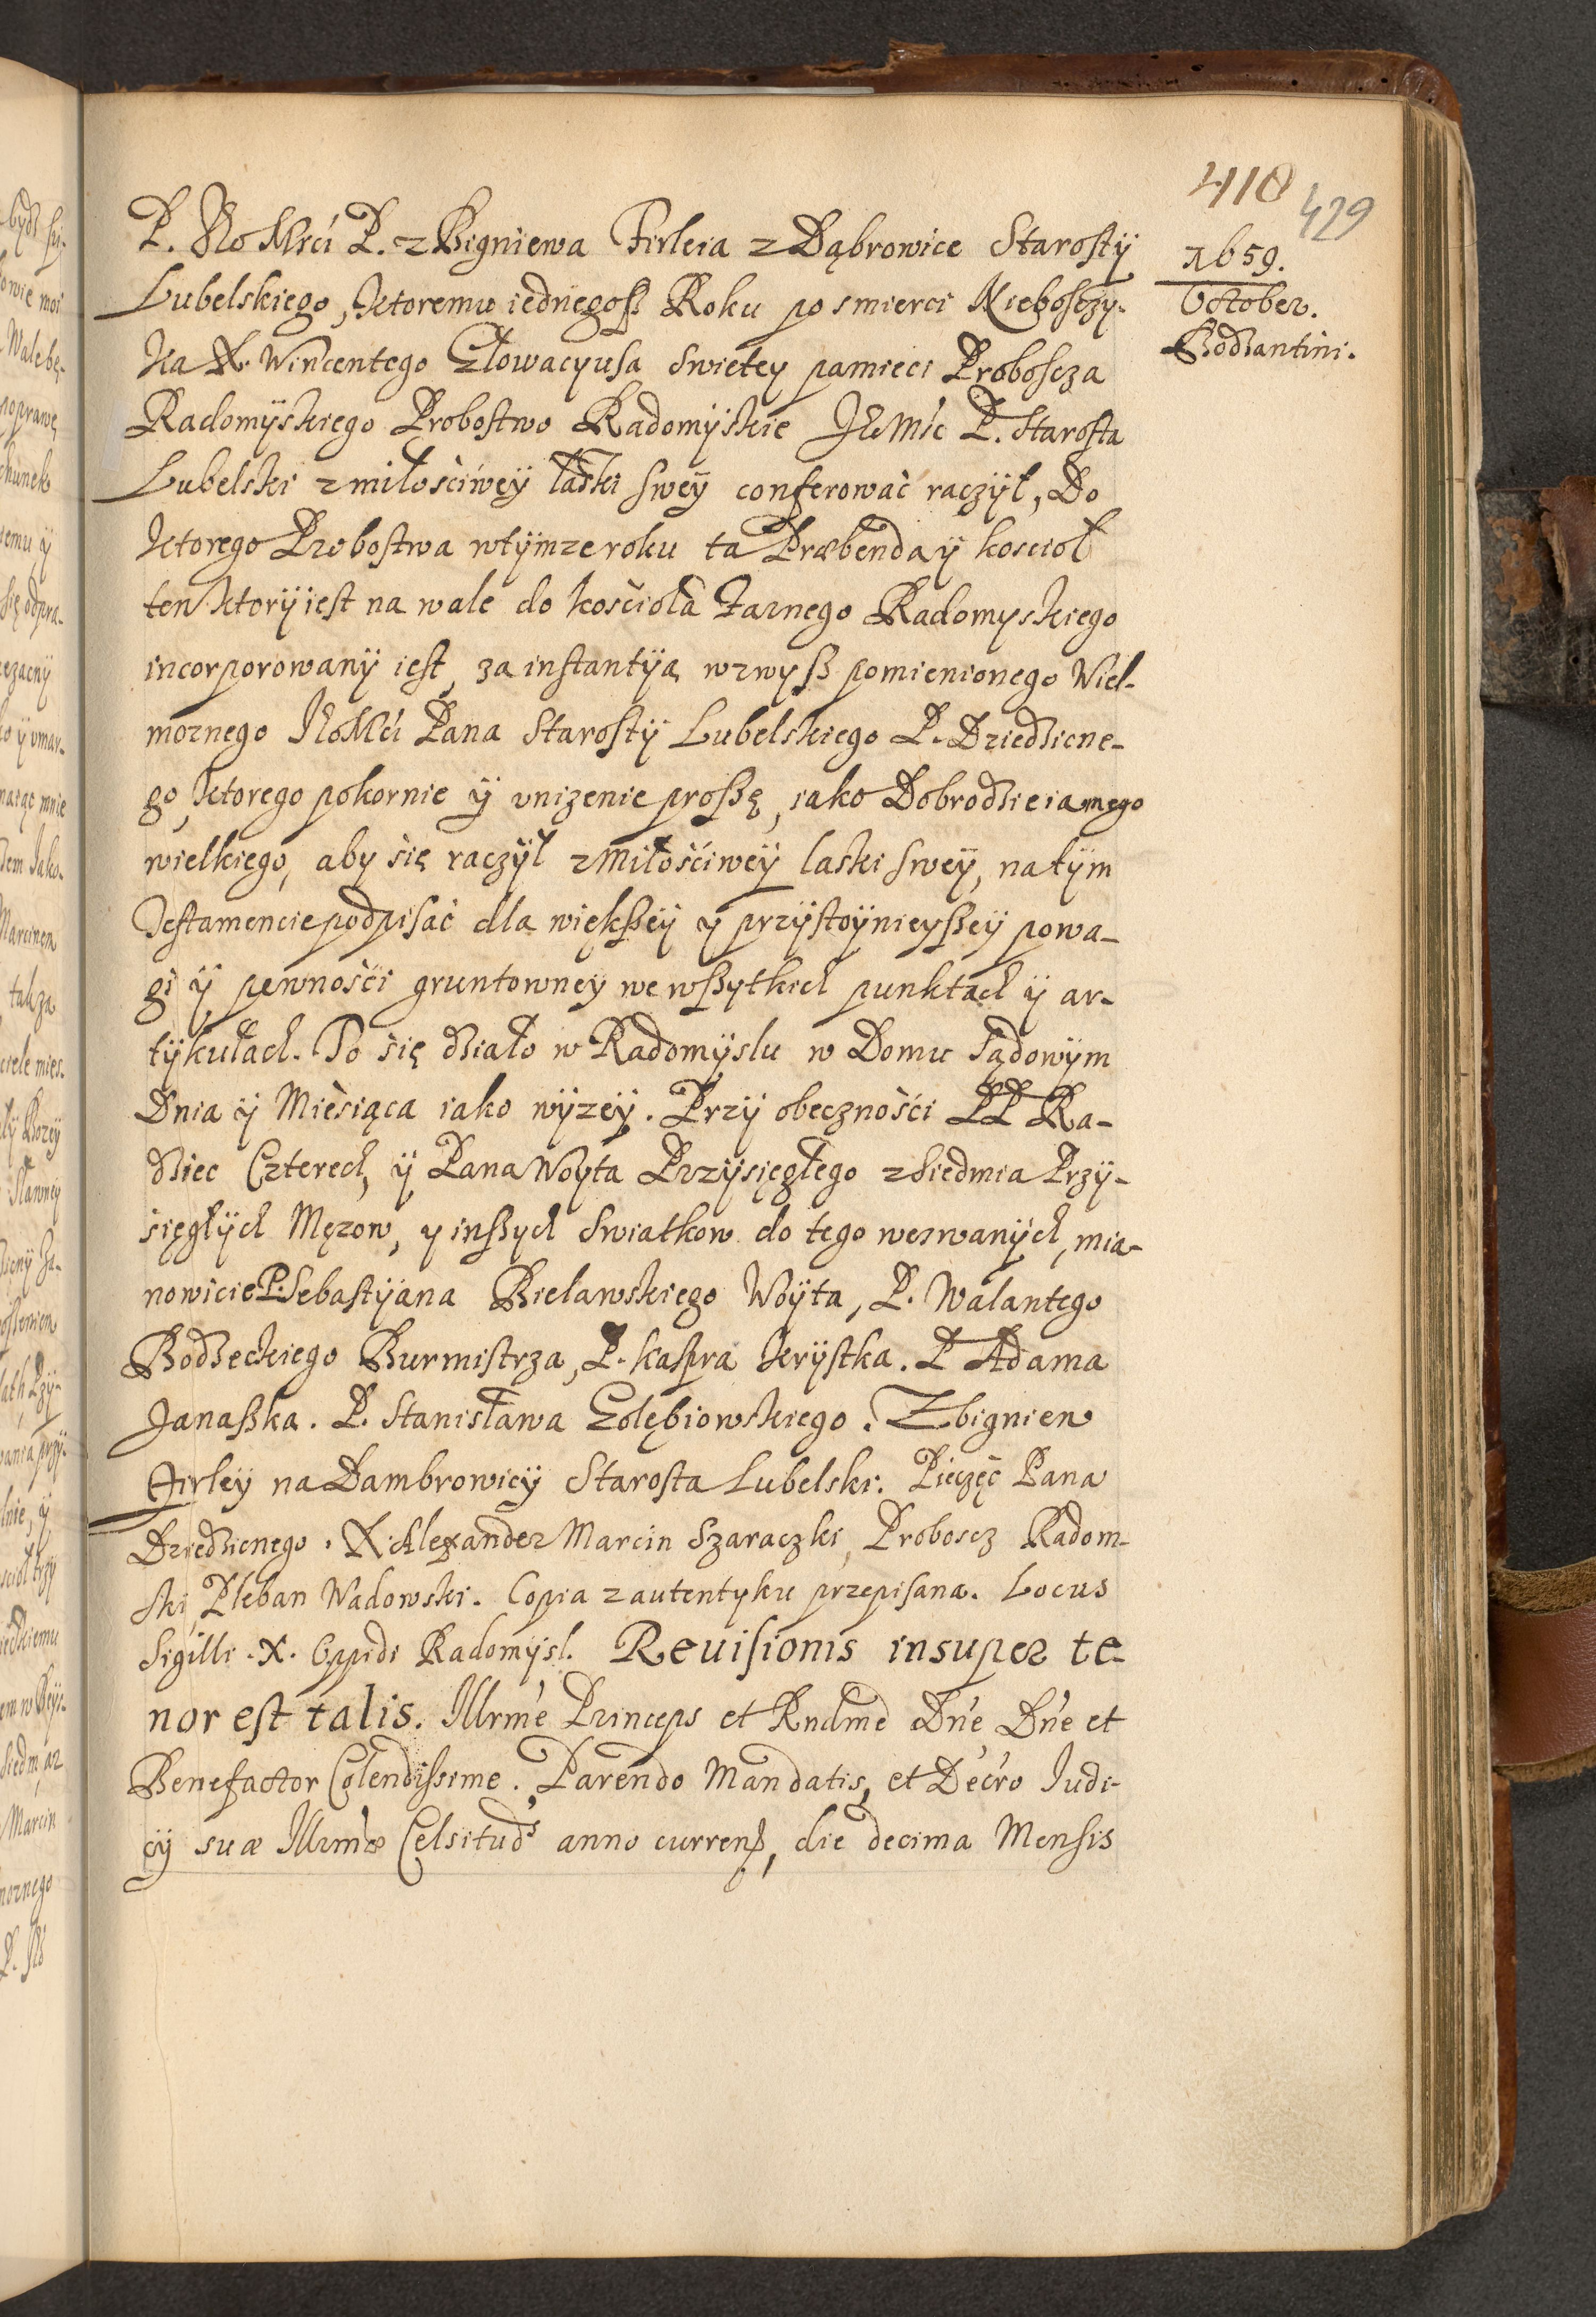 410
429
1659.
October.
Bodzantini.
P. JEoMści P. Zbigniewa Firleia z Dąbrowice Starosty
Lubelskiego, ktoremu iednegosz Roku po smierci Nieboszczy-
ka X. Wincentego Głowacyusa swietey pamieci Proboszcza
Radomyskiego Probostwo Radomyskie JEMśc P. Starosta
Lubelski z miłosciwey łaski swey conferowac raczył, Do
ktorego Probostwa w tymze roku ta Præbenda y koscioł
ten ktory iest na wale do koscioła Farnego Radomyskiego
incorporowany iest, za instantyą wzwysz pomienionego Wiel-
moznego JEoMści Pana Starosty Lubelskiego P. Dziedzicne-
go, ktorego pokornie y unizenie proszę, iako Dobrodzieia mego
wielkiego, aby się raczył z miłościwey laski swey, na tym
Testamencie podpisać dla większey y przystoynieyszey powa-
gi y pewnosci gruntowney we wszytkich punktach y ar-
tykułach. To się działo w Radomyslu w Domu sądowym
Dnia y Miesiąca iako wyzey. Przy obecznosci PP Ra-
dziec Czterech, y Pana Woyta Przysięgłego z siedmia Przy-
sięgłych Męzow, y inszych swiatkow do tego wezwanych, mia-
nowicie P. Sebastyana Bielawskiego Woyta, P. Walantego
Bodzeckiego Burmistrza, P. Kaspra Krystka. P Adama
Janaszka. P. Stanisława Gołębiowskiego. Zbigniew
Firley na Dambrowicy Starosta Lubelski. Pieczęć Pana
Dziedzicnego. X. Alexander Marcin Szaraczki, Proboscz Radom-
ski, Pleban Wadowski. Copia z autentyku przepisana. Locus
Sigilli .X. Oppidi Radomysl. Reuisionis insuper te-
nor est talis. Illrme Princeps et Rndme Dne, Dne et
Benefactor Colendissime. Parendo Mandatis, et Decro Judi-
cÿ suæ Illrmæ Celsituds anno currenß, die decima Mensis